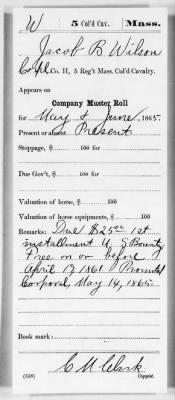 W 5 Col'd Cav. Mass.
Jacob B Wilson
Cpl, Co. H, 5 Reg't Mass. Col'd Cavalry.
Appears on
Company Muster Roll
for May & June, 1865.
Present or absent Present
Stoppage, $ 100 for
Due Gov't, $ 100 for
Valuation of horse, $ 100
Valuation of horse equipments, $ 100
Remarks: Due $25.00 1st
installment U. S Bounty
Free on or before
April 19 1861 Promoted
Corporal May 14, 1865.
Book mark:
C M Clark
(358) Copyist.